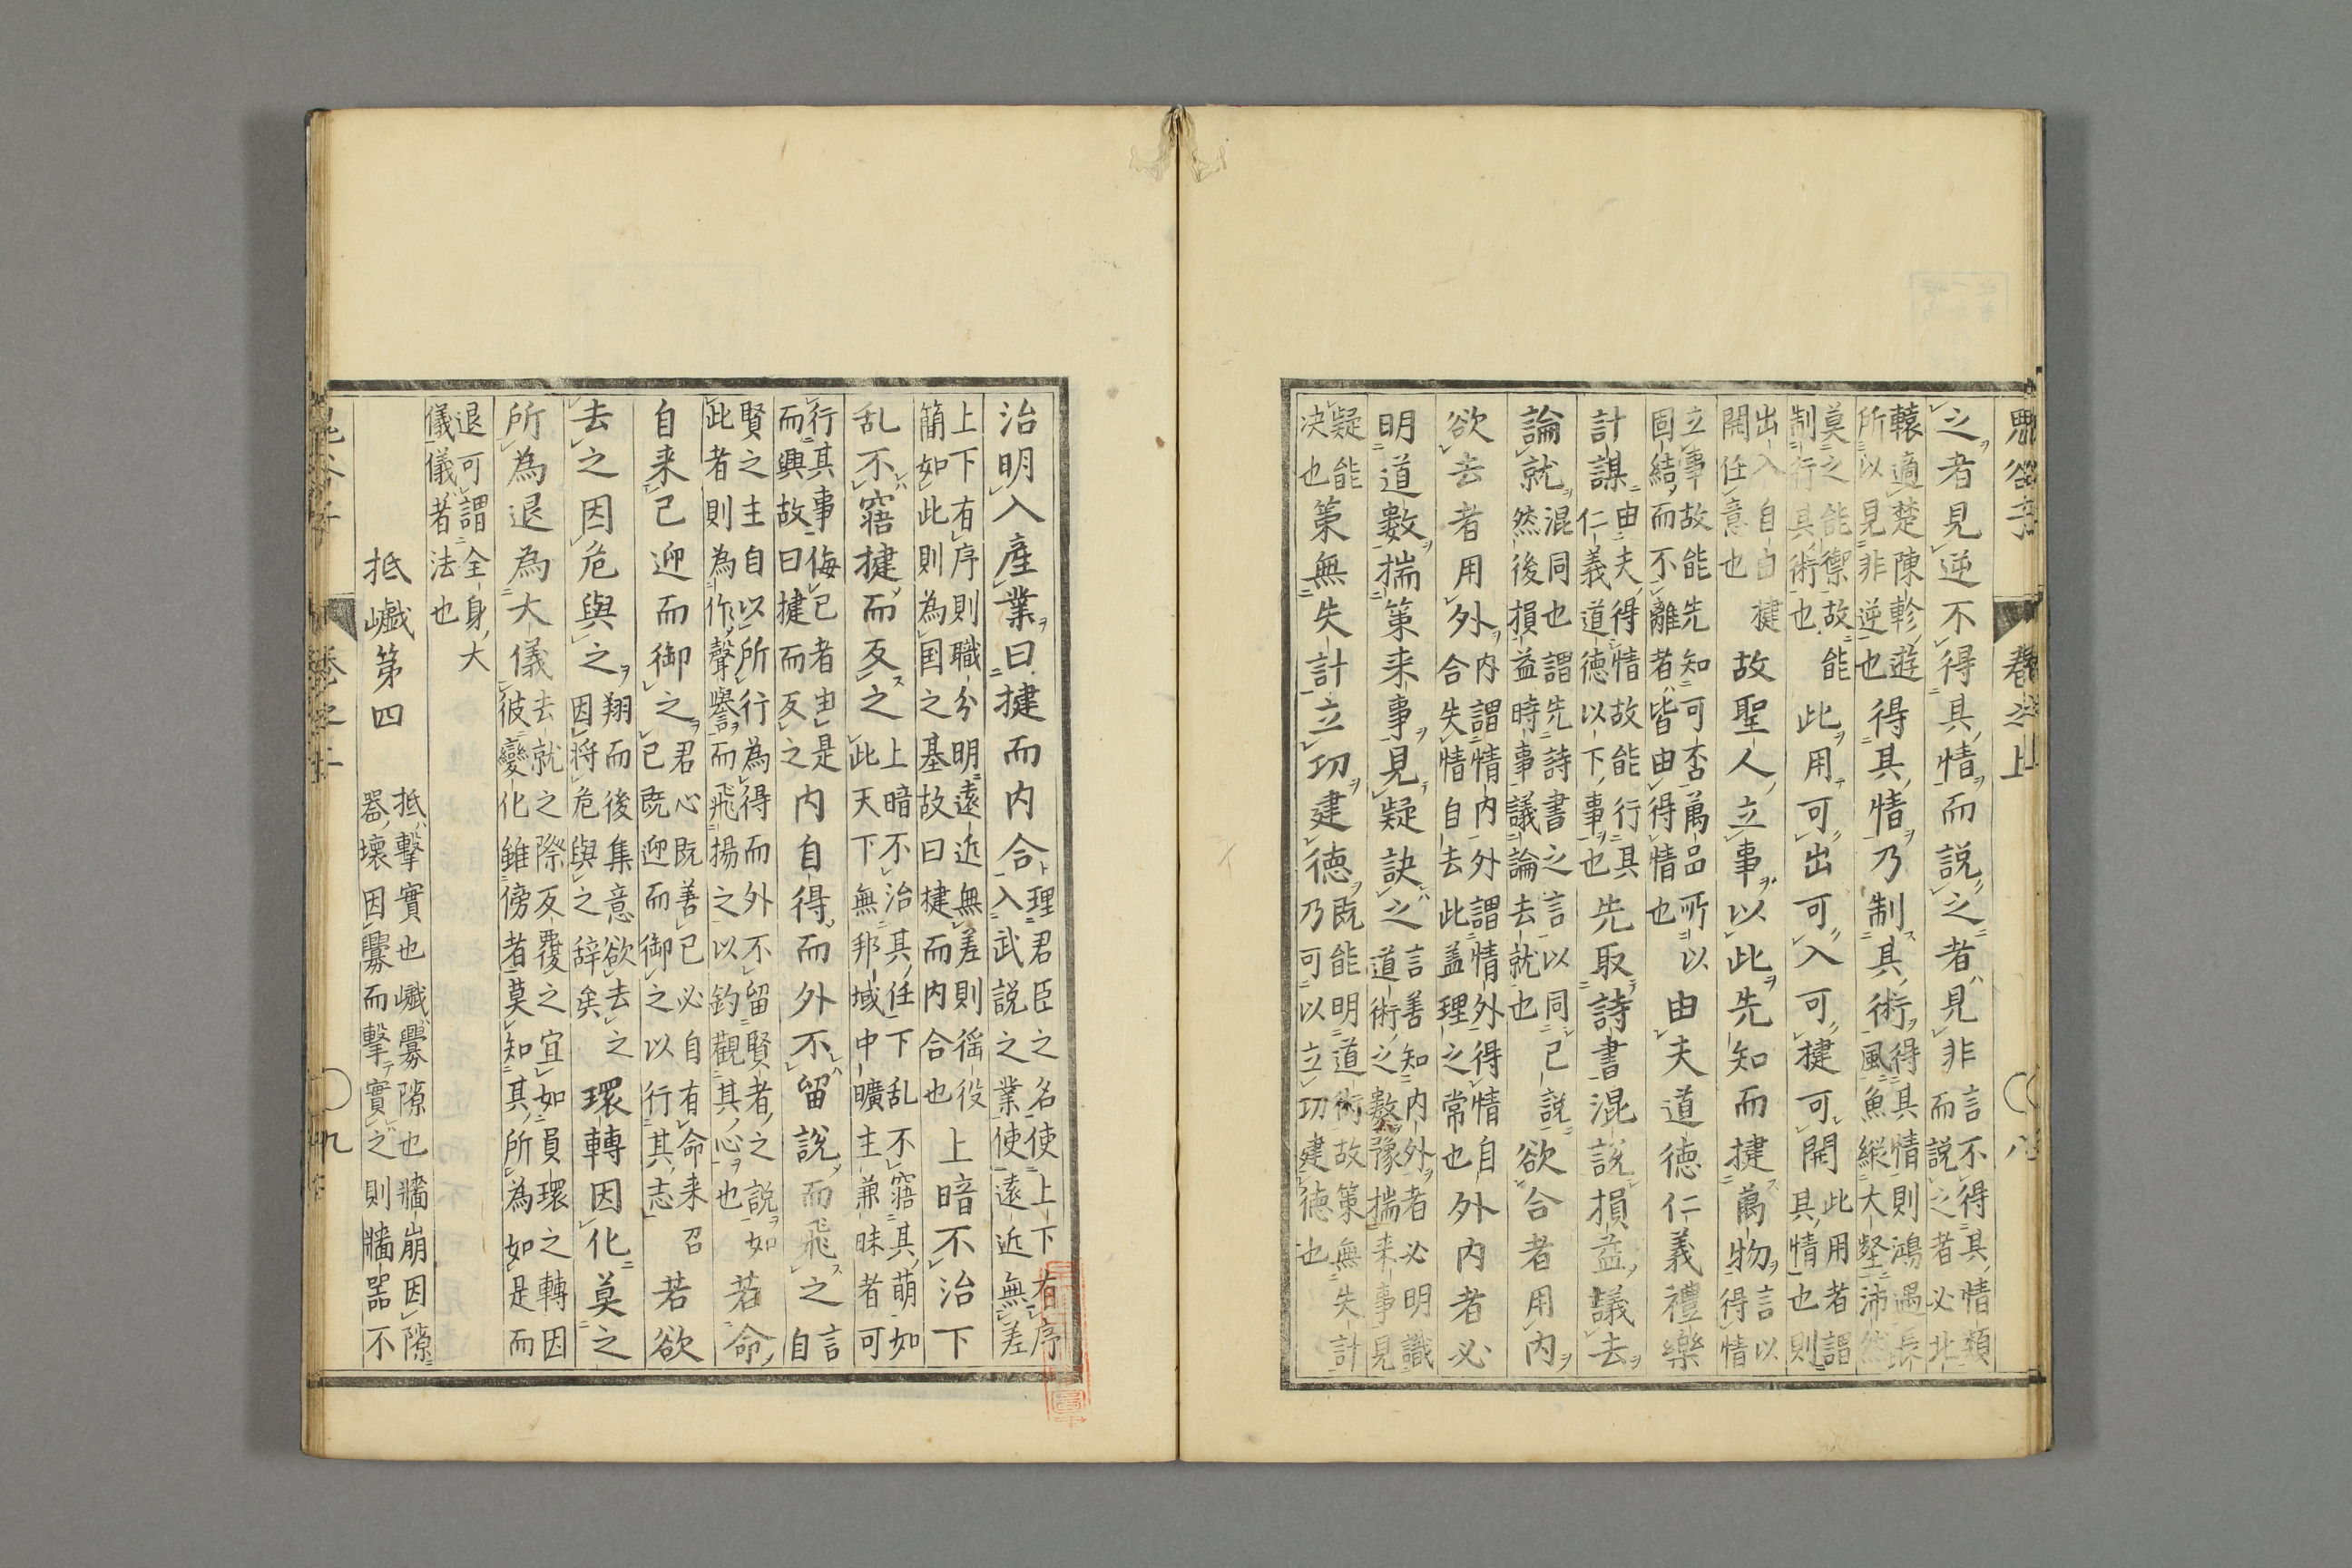 鬼谷子 卷之上 八
之者見逆不得其情而説之者見非言不得其情類
而説之者必北
轅適楚陳軫遊
所以見非逆也得其情乃制其術得其情則鴻遇長
風魚縱大壑沛然
莫之能禦故能
制行其術也此用可出可入可揵可開此用者謂
其情也則
出入自由揵
開任意也故聖人立事以此先知而揵萬物言以
得情
立事故能先知可否萬品所以
固結而不離者皆由得情也由夫道徳仁義禮樂
計謀由夫得情故能行其
仁義道徳以下事也先取詩書混説損益議去
論就混同也謂先詩書之言以同己説
然後損益時事議論去就也欲合者用内
欲去者用外内謂情内外謂情外得情自
合失情自去此盖理之常也外内者必
明道數揣策来事見疑訣之言善知内外者必明識
道術之數豫揣来事見
疑能
决也策無失計立功建徳既能明道術故策無失計
乃可以立功建徳也
治明入産業曰揵而内合理君臣之名使上下有序
入武説之業使遠近無差
上下有序則職分明遠近無差則徭役
簡如此則為国之基故曰揵而内合也上暗不治下
乱不寤揵而反之上暗不治其任下乱不寤其萌如
此天下無邦域中曠主兼昧者可
行其事侮己者由是
而興故曰揵而反之内自得而外不留説而飛之言
自
賢之主自以所行為得而外不留賢者之説如
此者則為作聲譽而飛揚之以釣觀其心也若命
自来己迎而御之君心既善己必自有命来召
己既迎而御之以行其志若欲
去之因危與之翔而後集意欲去之
因将危與之辞矣環轉因化莫之
所為退為大儀去就之際反覆之宜如員環之轉因
彼變化雖傍者莫知其所為如是而
退可謂全身大
儀儀者法也
抵巇第四抵撃實也巇釁隙也牆崩因隙
器壊因釁而撃實之則牆器不
鬼谷子 卷之上 九